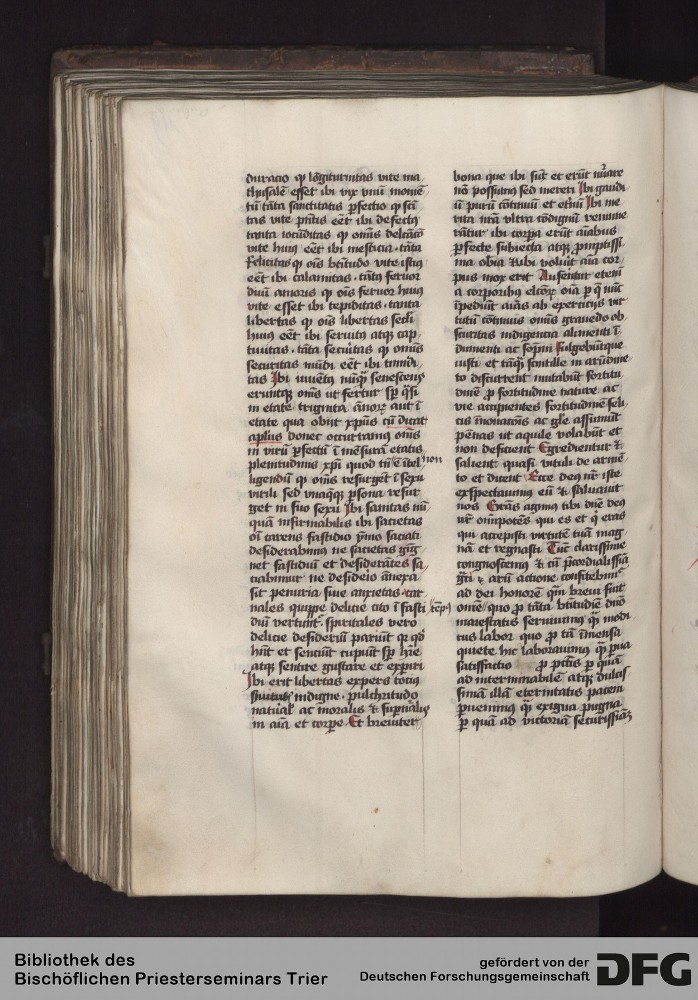 duracio qͥ lōgiturnitas vite ma
thusale esset ibi vix vnū momē
tū tāta sanctitatis ꝑfectio qͥ scī
tas vite pn̄tis eēt ibi defectꝰ
tanta iocūditas qͥ omīs delc̄aco
vite huiꝰ eēt ibi mesticia · tāta
Felicitas qͥ oīs btītudo vite istiꝰ
eēt ibi calamitas · tātꝰ feruor
diuī amoris qͥ oīs feruor huiꝰ
vite esset ibi tepiditas · tanta
libertas qͥ oīs libertas secli
huiꝰ eēt ibi seruitꝰ atqꝫ cap
tiuitas · tāta secūitas qͥ omīs
securitas mūdi eēt ibi timidi
tas Ibi iuuētꝰ nūqͣ senescens
eruntqꝫ omīs ut fertur sꝑ qͣsi
in etate triginta ānoꝝ aut ī
etate qua obijt xpūs cū dicat
aplūs donec occurramꝰ omīs
in virū ꝑfectū ī mēsurā etatis
plenitudinis xpī quod tn̄ ē ītel non
ligendū qͥ omīs resurget ī sexu
virili sed vnaqͣqꝫ ꝑsona resur
get in suo sexu Ibi sanitas nū
quā infirmabilis ibi sacietas
oī carens fastidio ymo saciati
desiderabimꝰ ne sacietas gīg
net fastidiū et desiderātes sa
ciabimur ne desideio ānexa
sit penuria siue anxietas · car
nales quippe delicie cito ī fasti
diū vertūt · spiritales vero
delicie desideriū pariūt qͥ qd̓
hn̄t et senciūt cupiūt sꝑ hr̄e
atqꝫ sentire gustare et expīri
Ibi erit libertas expers tociꝰ
s̓uitutꝭ indigne · pulchritudo
natūal̓ ac moralis ⁊ suꝑnālis
in aīa et corꝑe · Et breuiter
bona que ibi sūt et erūt nūare
nō possumꝰ sed mereri Ibi gaudi
ū purū cōtinuū et et̓nū Ibi me
rita nrā vltra cōdignū remune
rātur ibi corꝑa erūt aīabus
ꝑfecte subiecta atqꝫ pmptissi
ma obīa ⁊ vbi voluīt aīa cor
pus mox erit Auferūtur etenī
a corporibꝰ elcōꝝ oīa ꝑ qͥ nūc
īpediūt aīas ab exercitijs vir
tutū cōtinuis omīs grauedo ob
scuritas indigencia alimenti ī
dumenti ac sopni Fulgebūtque
iusti et tāqͣ scintille in arūdine
to discurrent mutabūt fortitu
dinē ꝓ fortitudine nature ac
vie accipientes fortitudinē feli
cis immutacōis ac gl̓e assumūt
pēnas ut aquile volabūt et
non deficient Egredientur ⁊
salient quasi vituli de armē
to et dicent Ecce deus nr̄ iste
exspectauimꝰ eū ⁊ saluauit
nos Grās agimꝰ tibi dn̄e deꝰ
nr̄ omīpotēs qui es et qͥ eras
qui accepisti virtutē tuā mag
nā et regnasti Tūc clarissime
congnoscemꝰ ⁊ cū p̄cordialissīa
grā ⁊ arū actione confitebimr̄
ad dei honorē qͣm breui fuit
omē quo ꝓ tāta btīudiē dīue
maiestatis seruiuimꝰ qͣ modi
cus labor quo ꝓ tā īmensa
quiete hic laborauimꝰ qͣ pua
satisfactio ꝓ pctīs ꝑ quā
ad interminabilē atqꝫ dulcis
simā illā eternitatis pacem
puenimꝰ qͣ exigua pugna
ꝑ quā ad victoriā securissimā
Bibliothek des
Bischöflichen Priesterseminars Trier
gefördert von der
Deutschen Forschungsgemeinschaft
DFG